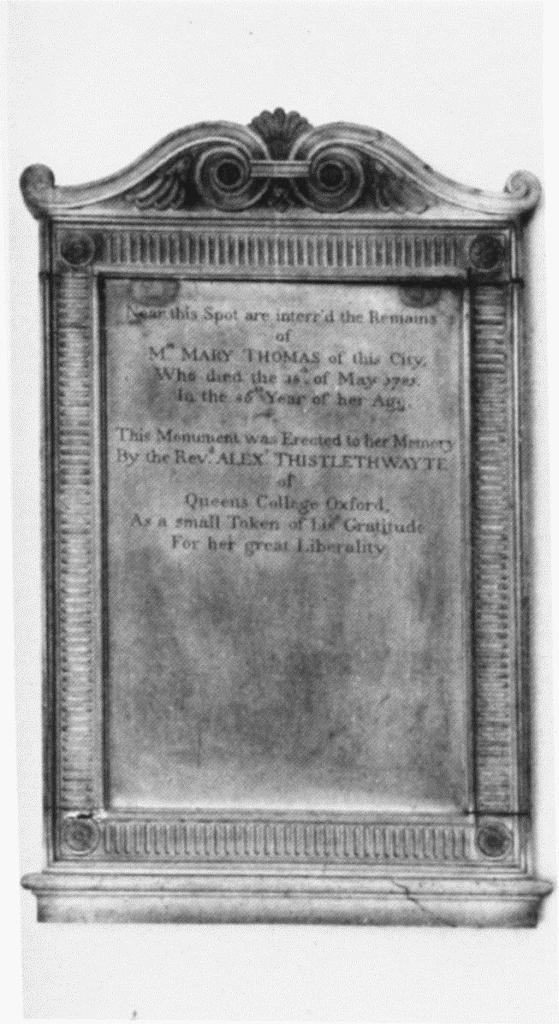 Near this Spot are interr'd the Remains
of
Mrs MARY THOMAS of this City,
Who died the of May
In the Year of her Age.
This Monument was Erected to her Memory
By the Revd. ALEXr. THISTLETHWAYTE
of
Queens College Oxford,
As a small Token of his Gratitude
For her great Liberality